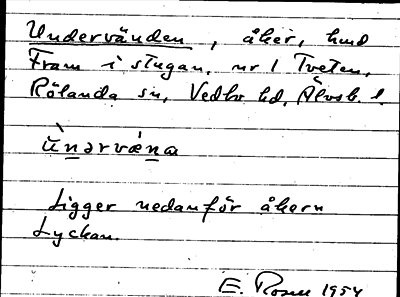 Undervänden, åker, hmd
Fram i stugan, nr 1 Tveten,
Rölanda sn, Vedbo hd, Älvsb. l.
ùnərvǽna
Ligger nedanför åkern
Lyckan.
E. Rosen 1954